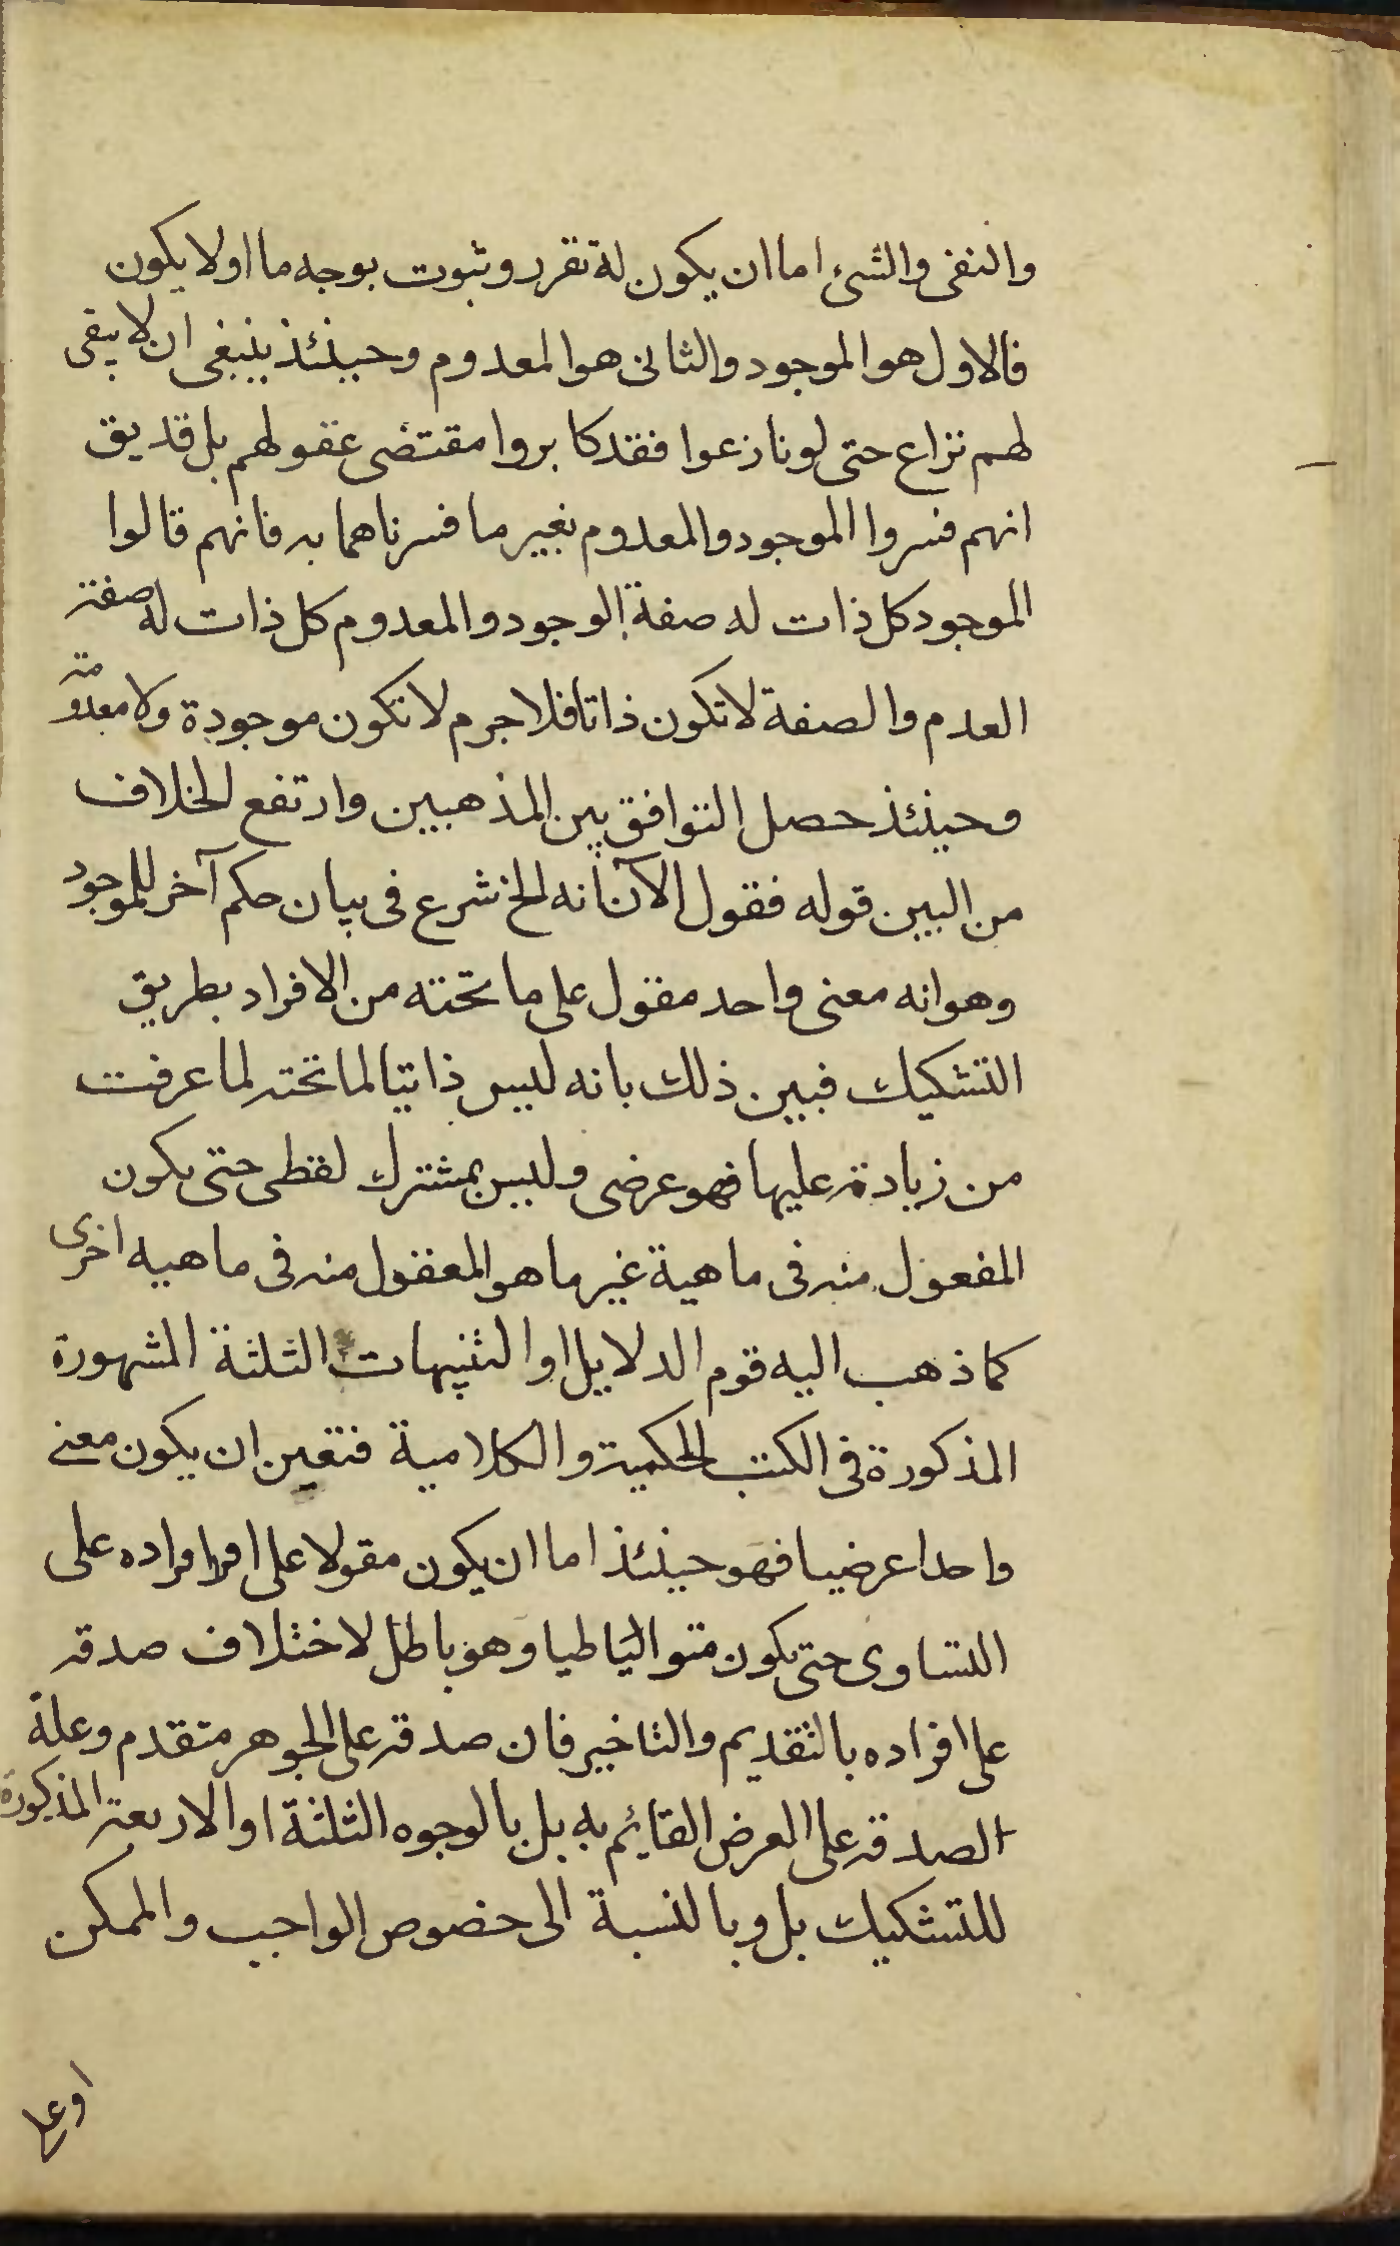 والنفى والشئ اما ان يكون له تقرر وثبوت بوجه ما او لا يكون
فالاول هو الموجود والثانى هو المعدوم وحينئذ ينبغى ان لا يبقى
لهم نزاع حتى لو نازعوا فقد كابروا مقتضى عقولهم بل قد يق
انهم فسروا الموجود والمعدوم بغير ما فسرناهما به فانهم قالوا
الموجود كل ذات له صفة الوجود والمعدوم كل ذات له صفة
العدم والصفة لا تكون ذاتا فلا جرم لا تكون موجودة ولا معدومة
وحينئذ حصل التوافق بين المذهبين وارتفع الخلاف
من البين قوله فقول الآن انه الخ شرع فى بيان حكم آخر للموجود
وهو انه معنى واحد مقول على ما تحته من الافراد بطريق
التشكيك فبين ذلك بانه ليس ذاتيا لما تحته لما عرفت
من زيادته عليها فهو عرضى وليس بمشترك لفظى حتى يكون
المفعول منه فى ماهية غير ما هو المعقول منه فى ماهيه اخرى
كما ذهب اليه قوم الدلايل او التنبيهات الثلثة المشهورة
المذكورة فى الكتب الحكمية والكلامية فتعين ان يكون معنى
واحدا عرضيا فهو حينئذ اما ان يكون مقولا على افرا افراده على
التساوى حتى يكون متواليا طيا وهو باطل لاختلاف صدقه
على افراده بالتقديم والتاخير فان صدقه على الجوهر متقدم وعلة
الصدقه على العرض القايم به بل بالوجوه الثلثة او الاربعة المذكورة
للتشكيك بل وبالنسبة الى خصوص الواجب والممكن
او على